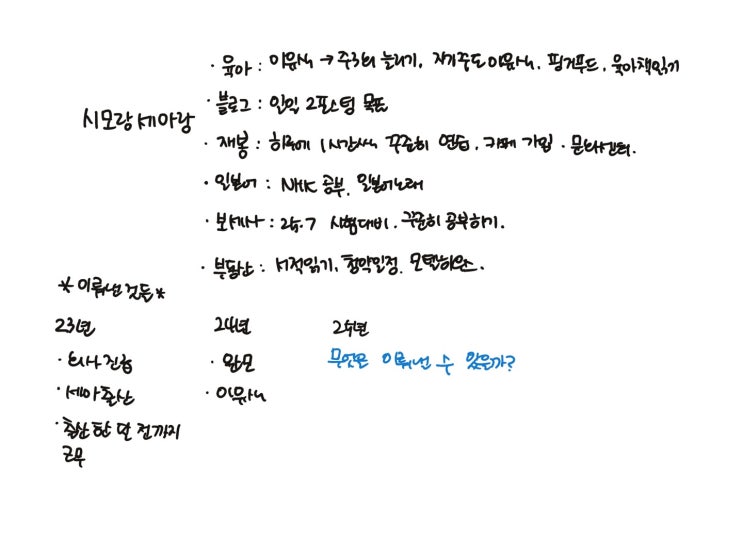 · 육아 : 이유식 → 주3회 늘리기, 자기주도이유식, 핑거푸드, 육아책읽기
시모랑세아랑
· 블로그 : 일일 2포스팅 목표
· 재봉 : 하루에 1시간씩 꾸준히 연습, 카페 가입 · 문화센터.
· 일본어 : NHK 공부, 일본어노래
· 보세사 : 25.7 시험대비, 꾸준히 공부하기.
· 부동산 : 서적읽기, 청약일정, 모델하우스.
* 이뤄낸것들 *
23년 24년 25년
· 회사 진승 · 완모 무엇을 이뤄낼 수 있을까?
· 세아출산 · 이유식
· 출산 한 달 전까지
근무